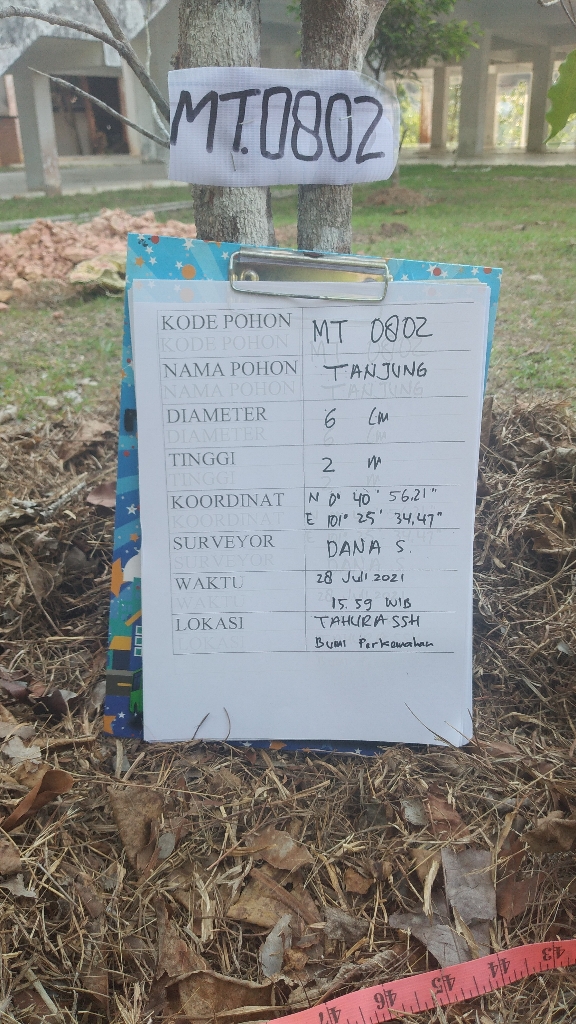 MT.0802
KODE POHON MT 0802
NAMA POHON TANJUNG
DIAMETER 6 Cm
TINGGI 2 M
KOORDINAT N 0° 40' 56.21"
E 101° 25' 34.47"
SURVEYOR DANA S.
WAKTU 28 Juli 2021
15.59 WIB
LOKASI TAHURA SSH
Bumi Perkemahan
43 44 45 46 47